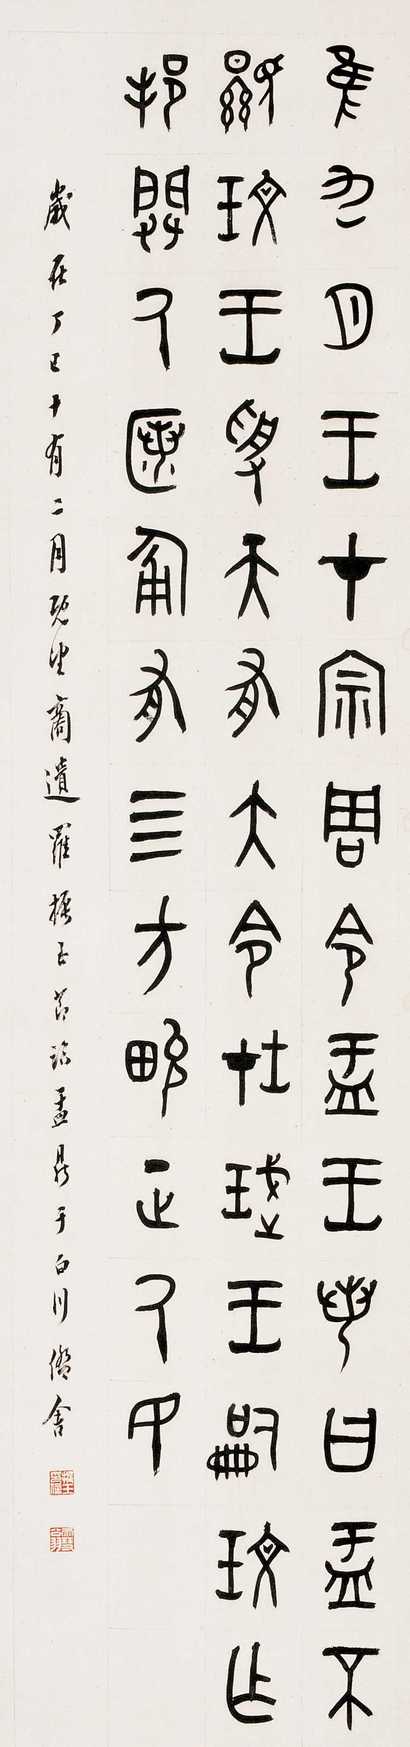 隹九月王才宗周令盂王若曰盂不
顯玟王受天有大令在珷王嗣玟乍
邦闢氒匿匍有三方畯正氒民
歲在丁巳十有二月既望商遺羅振玉節臨盂鼎于白川僑舍